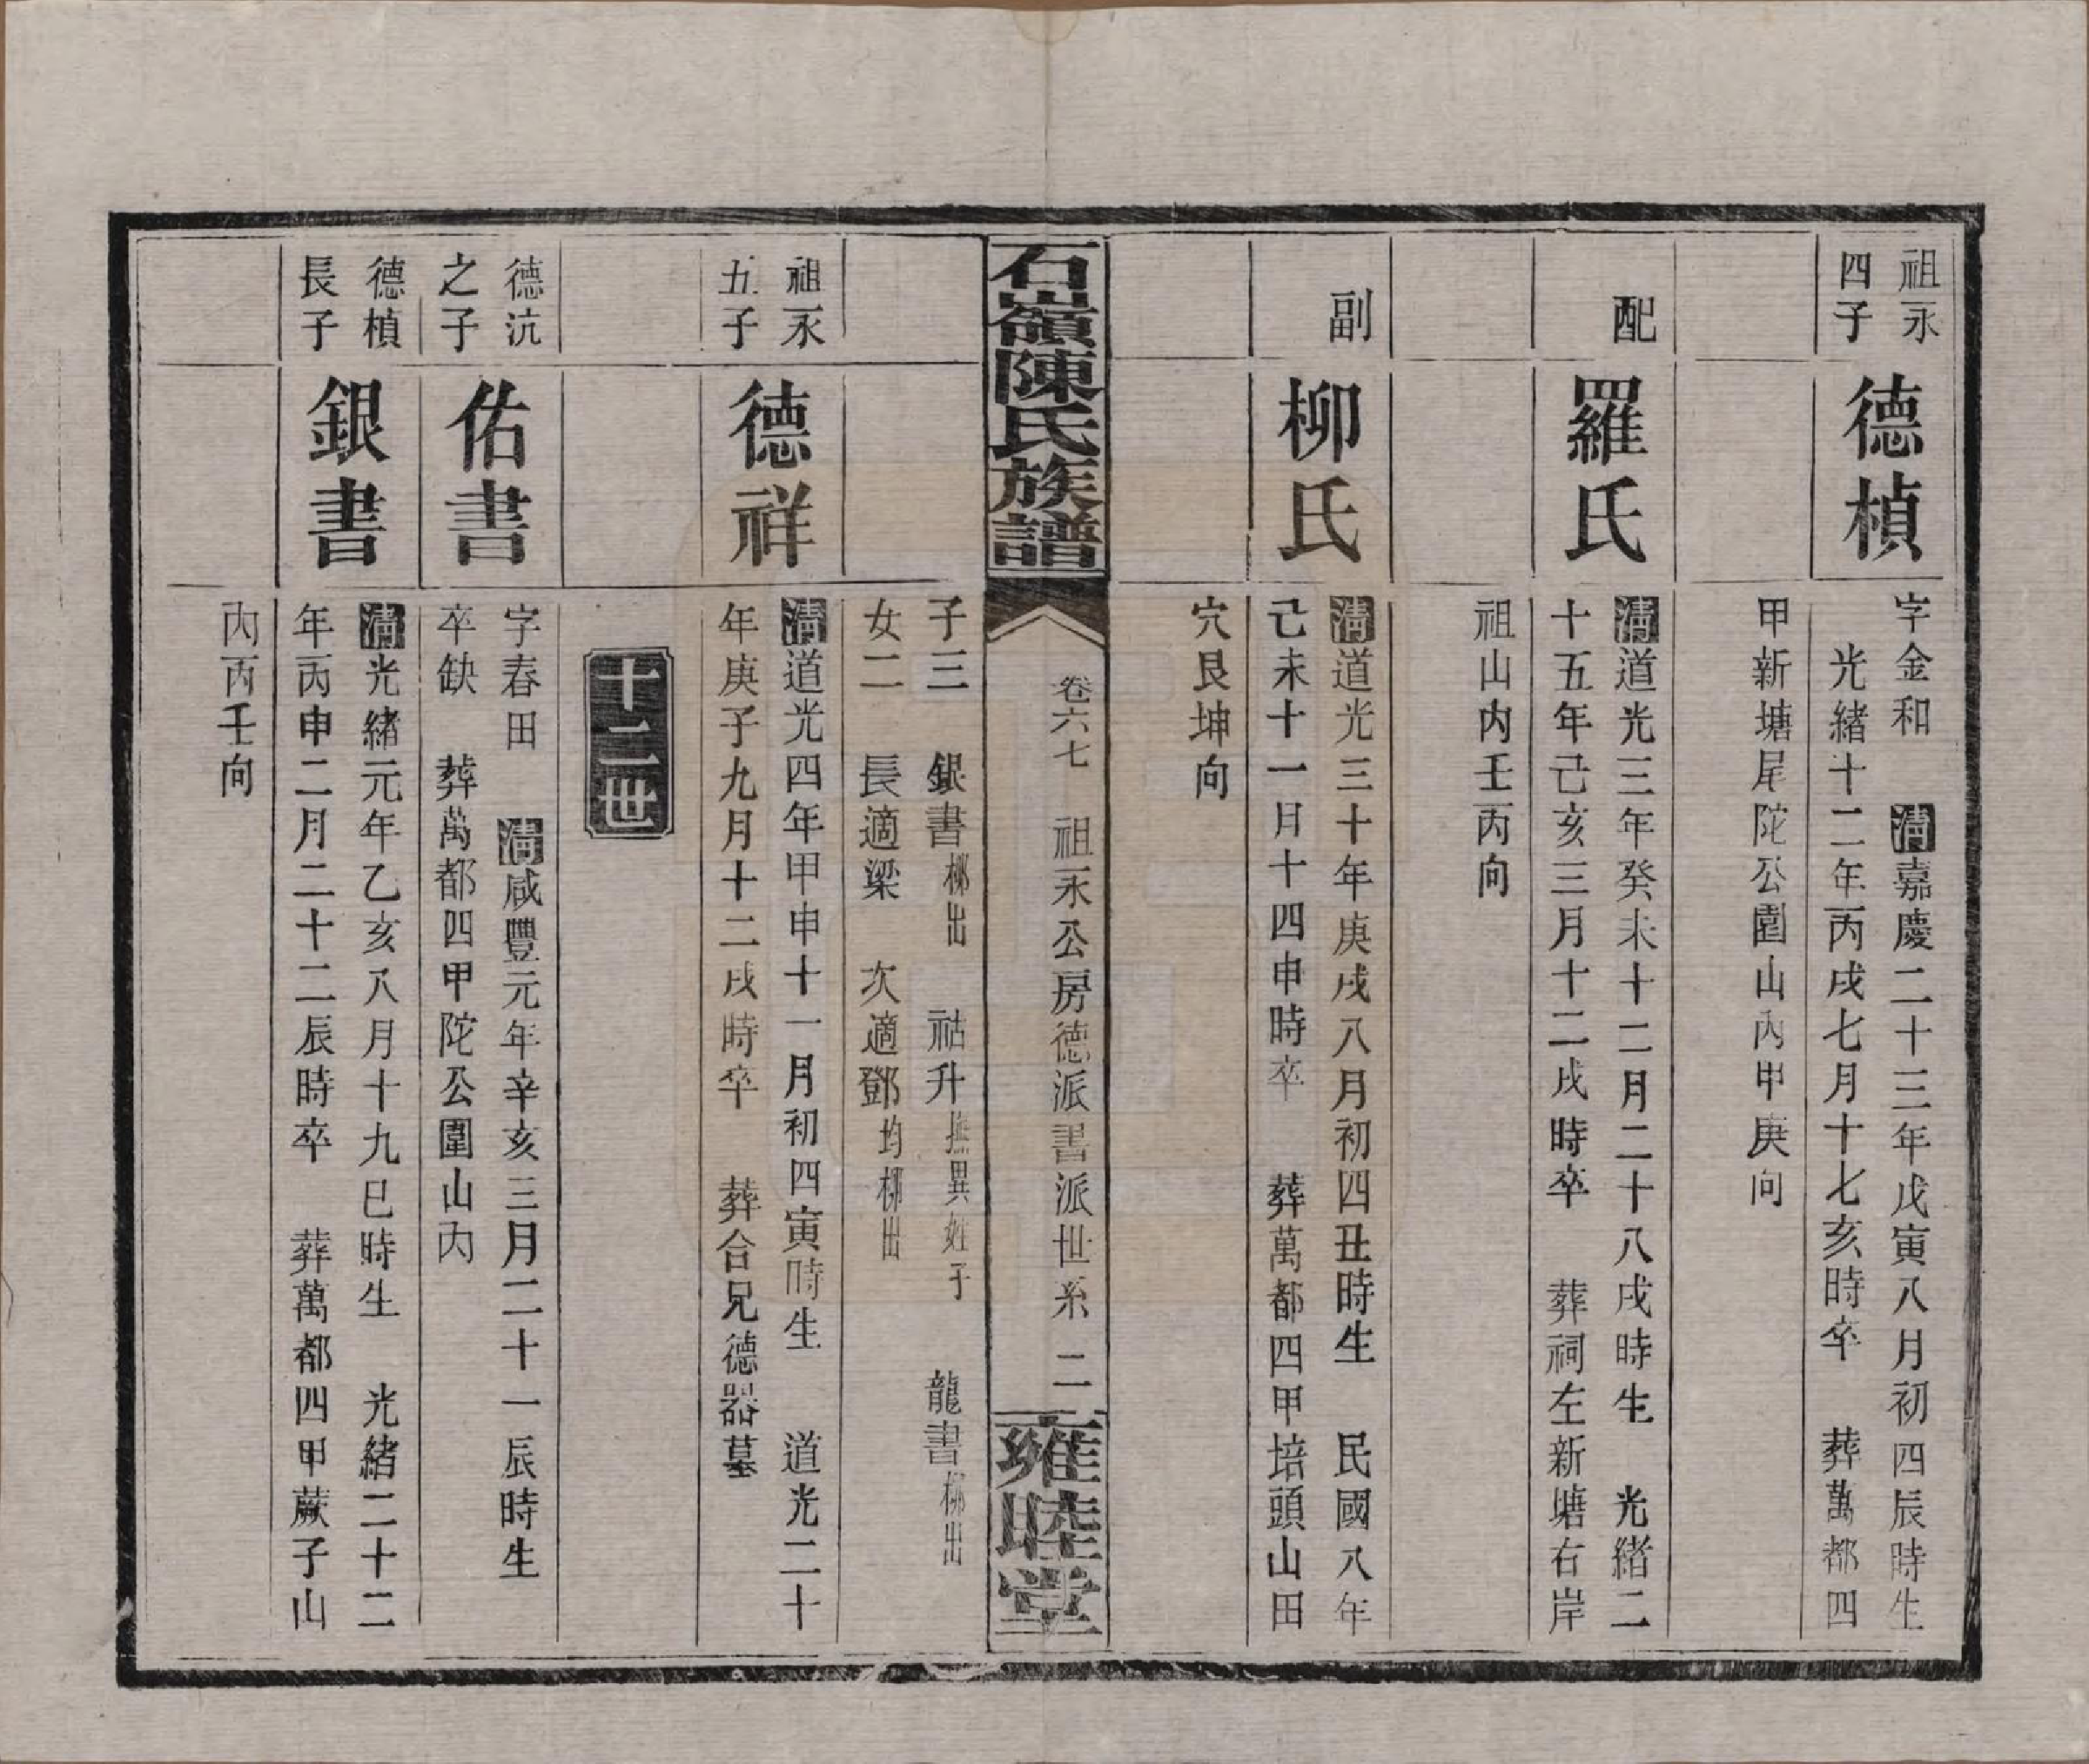 祖永
四子
德楨
字金和 清嘉慶二十三年戊寅八月初四辰時生
光緒十二年丙戌七月十七亥時卒 葬萬都四
甲新塘尾陀公圍山內甲庚向
配
羅氏
清道光三年癸未十二月二十八戌時生 光緒二
十五年己亥三月十二戌時卒 葬祠左新塘右岸
祖山內壬丙向
副
柳氏
清道光三十年庚戌八月初四丑時生 民國八年
己未十一月十四申時卒 葬萬都四甲培頭山田
穴艮坤向
石嶺陳氏族譜
卷六七 祖永公房德派書派世系 二
雍睦堂
子三 銀書柳出 祜升撫異姓子 龍書柳出
女二 長適梁 次適鄧均柳出
祖永
五子
德祥
清道光四年甲申十一月初四寅時生 道光二十
年庚子九月十二戌時卒 葬合兄德器墓
十二世
德沆
之子
佑書
字春田 清咸豐元年辛亥三月二十一辰時生
卒缺 葬萬都四甲陀公圍山內
德楨
長子
銀書
清光緒元年乙亥八月十九巳時生 光緒二十二
年丙申二月二十二辰時卒 葬萬都四甲蕨子山
內丙壬向